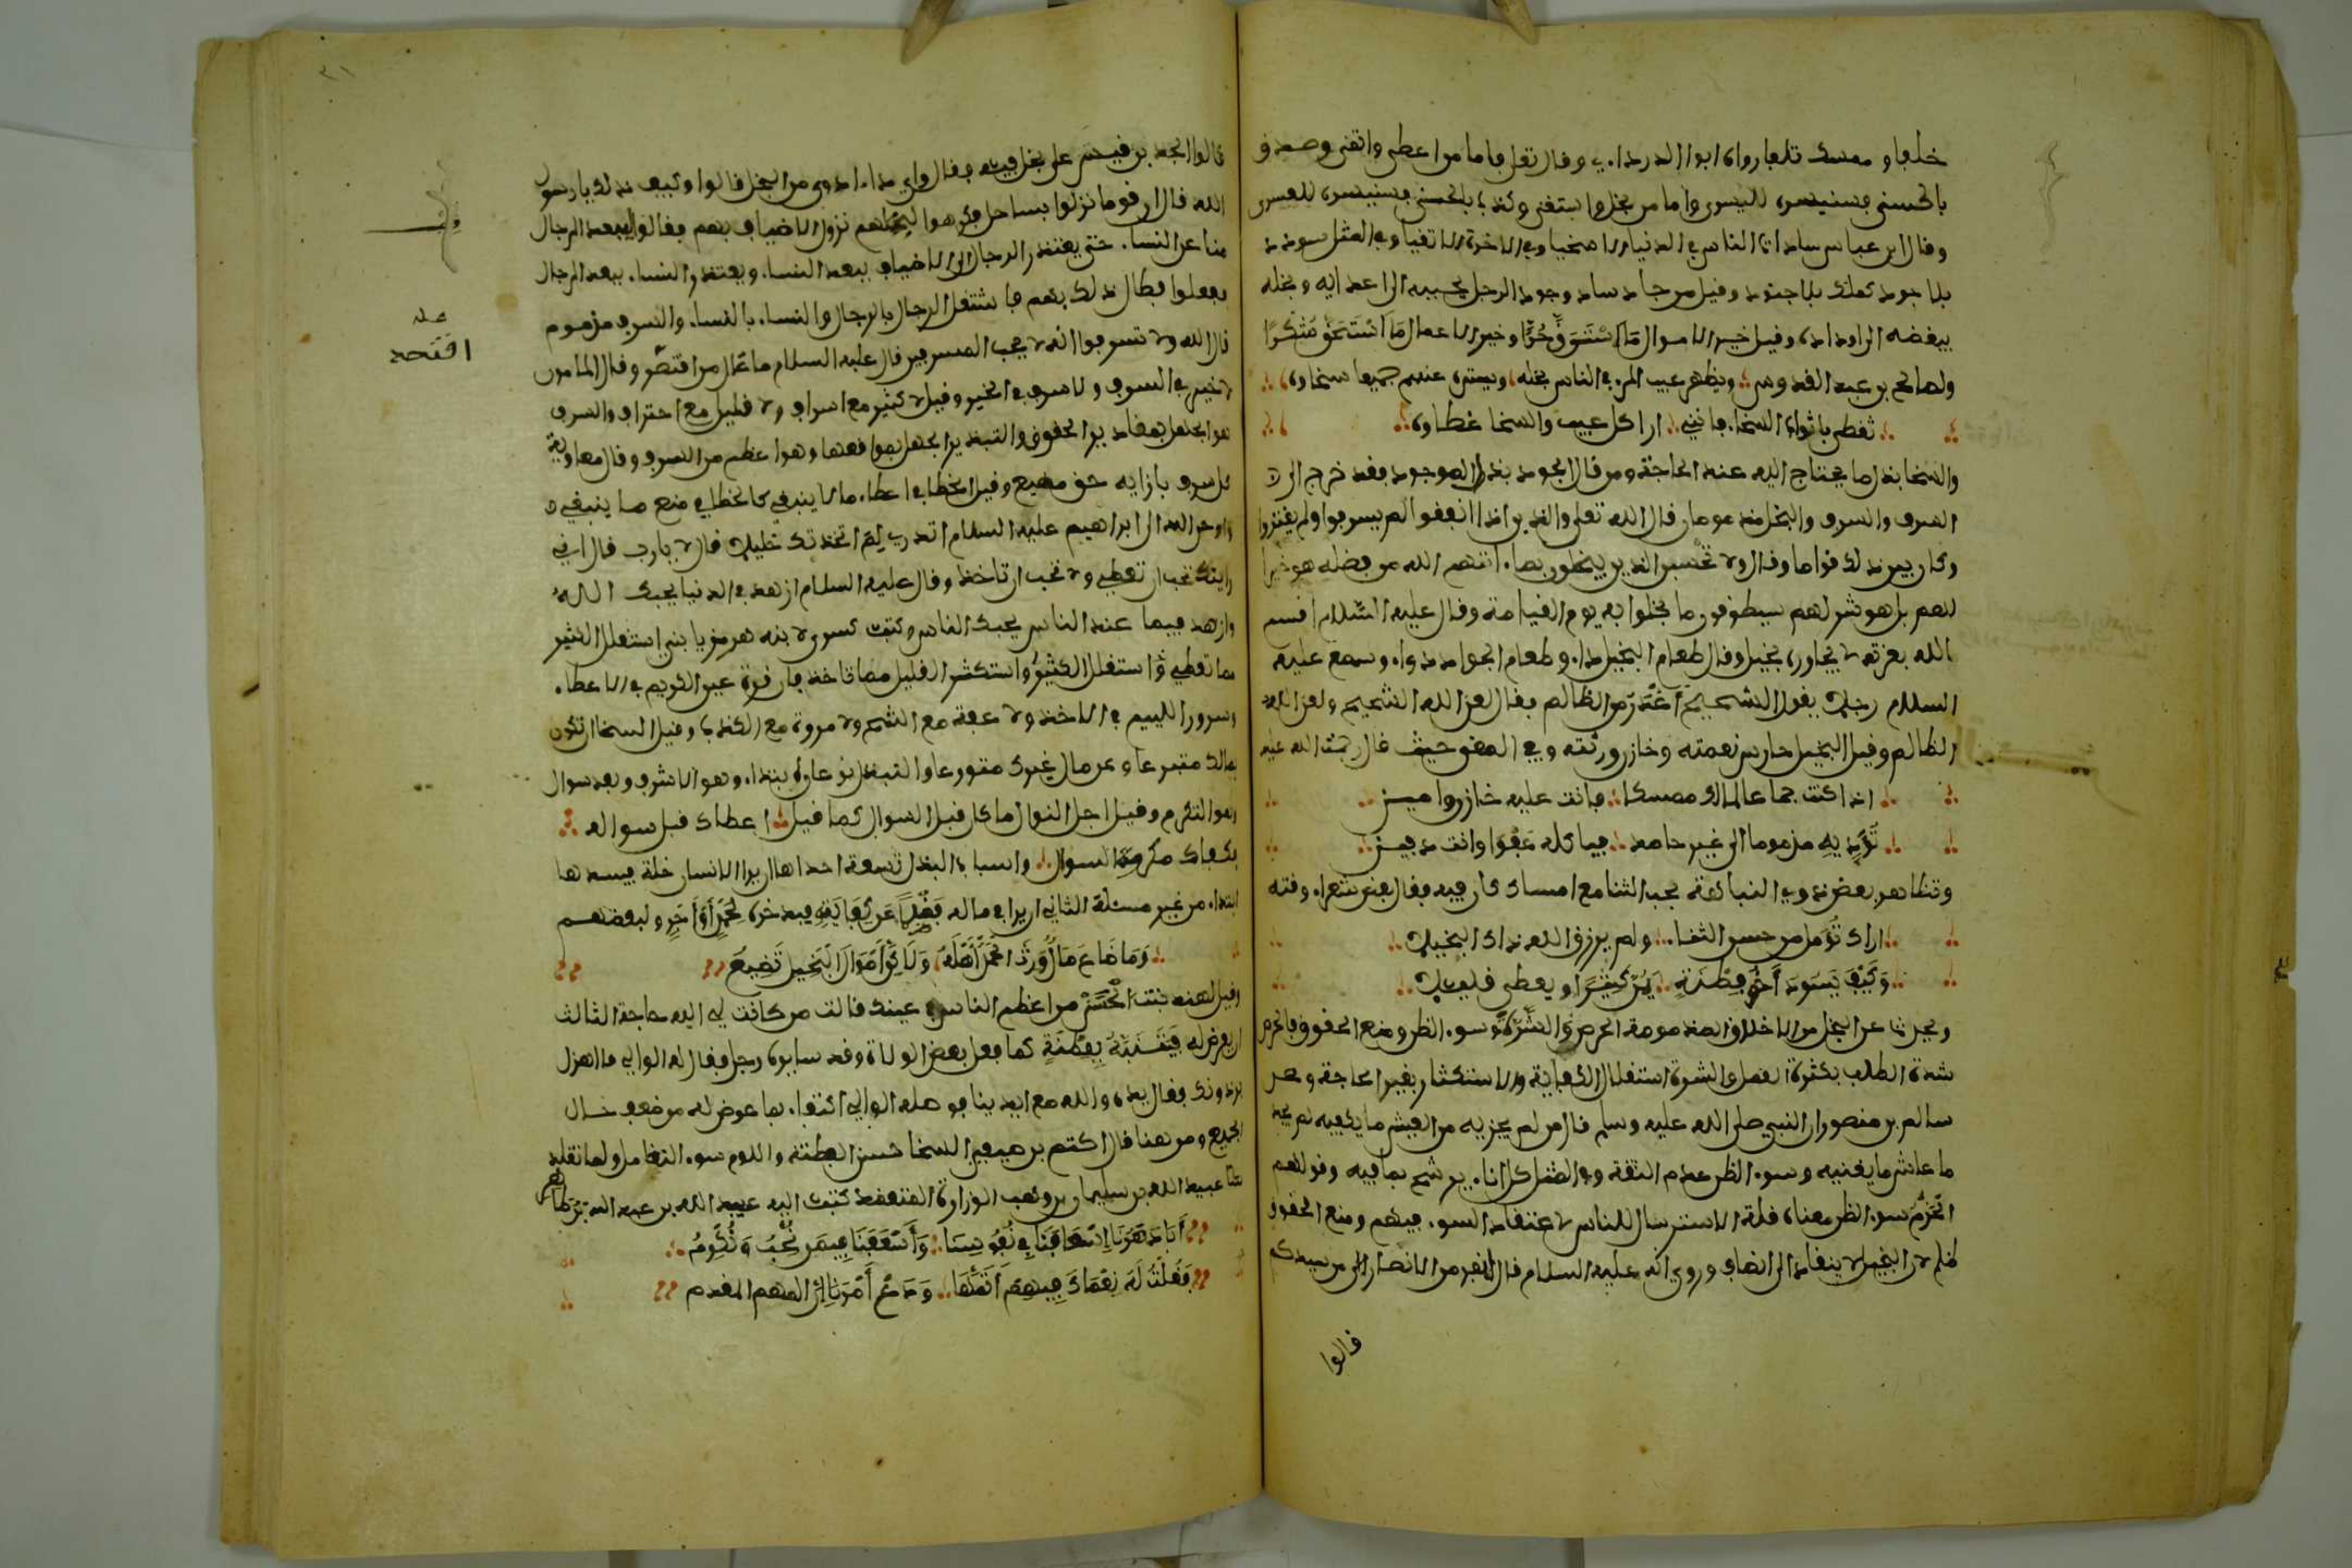 خلفا وممسك تلفا رواه ابو الدرداء وقال تعلى فاما من اعطى واتقى وصدق
بالحسنى فسنيسره لليسرى واما من بخل واستغنى وكذب بالحسنى فسنيسره للعسرى
وقال ابن عباس سادات الناس في الدنيا الاسخيا وفي الاخرة الاتقيا وفي المثل سودد
بلا جود كملك بلا جنود وقيل من جاد ساد وجود الرجل يحببه الى اعدايه وبخله
يبغضه الى اولاده وقيل خير الاموال ما استرق حرا وخير الاعمال ما استحق شكرا
ولصالح بن عبد القدوس ويظهر عيب المرء في الناس بخله ويستره عنهم جميعا سخاوه
تغطى باثواب السخاء فانني ارا كل عيب والسخا غطاوه
والسخا بذل ما يحتاج اليه عند الحاجة ومن قال الجود بذل الموجود فقد خرج الى
السرف والسرف والبخل مذمومان قال الله تعلى والذين اذا انفقوا لم يسرفوا ولم يقتروا
وكان بين ذلك قواما وقال ولا تحسبن الذين يبخلون بما اتاهم الله من فضله هو خيرا
لهم بل هو شر لهم سيطوقون ما بخلوا به يوم القيامة وقال عليه السلام اقسم
الله بعزته لا يجاوره بخيل وقال طعام البخيل داء وطعام الجواد دواء وسمع عليه
السلام رجلا يقول الشحيح اغدر من الظالم فقال لعن الله الشحيح ولعن الله
الظالم وقيل البخيل حارس نعمته وخازن ورثته وفي المعنى حيث قال رحمة الله عليه
اذا كنت جماعا لمالك ممسكا فانت عليه خازن وامين
تؤديه مذموما الى غير حامد فياكله عفوا وانت دفين
وتظاهر بعض ذوي النباهة بحب الثنا مع امساك كان فيه فقال بعض شعراء وقته
اراك تؤمل حسن الثناء ولم يرزق الله ذاك البخيلا
وكيف يسود اخو فطنة يمن كثيرا ويعطى قليلا
ويحدث عن البخل من الاخلاق المذمومة الحرص والشره وسوء الظن ومنع الحقوق فالحرص
شدة الطلب بكثرة العمل والشره استقلال الكفاية والاستكثار بغير الحاجة وعن
سالم بن منصور ان النبي صلى الله عليه وسلم قال من لم يجزيه من العيش ما يكفيه لم يجد
ما عاش ما يغنيه وسوء الظن عدم الثقة وفي المثل كل اناء يرشح بما فيه وقولهم
الحزم سوء الظن معناه قلة الاسترسال للناس لا اعتقاد السوء فيهم ومنع الحقوق
ظلم لان البخيل لا ينقاد الى انصاف وروي انه عليه السلام قال لنفر من الانصار الى من سيدكم
قالوا
قالوا الجد بن قيس على بخل فيه فقال واي داء ادوى من البخل قالوا وكيف ذلك يا رسول
الله قال ان قوما نزلوا بساحل فكرهوا لبخلهم نزول الاضياف بهم فقالوا ليبعد الرجال
منا عن النساء حتى يعتذر الرجال الى الاضياف ببعد النساء ويعتذر النساء ببعد الرجال
ففعلوا فطال ذلك بهم فاشتغل الرجال بالرجال والنساء بالنساء والسرف مذموم
قال الله ولا تسرفوا انه لا يحب المسرفين قال عليه السلام ما عال من اقتصد وقال المامون
لا خير في السرف ولا سرف في الخير وقيل لا كثير مع اسراف ولا قليل مع احتراف والسرف
هو الجهل بمقادير الحقوق والتبذير الجهل بمواقعها وهو اعظم من السرف وقال معاوية
كل سرف بازايه حق مضيع وقيل الخطا في اعطاء ما لا ينبغي كالخطا في منع ما ينبغي
واوحى الله الى ابراهيم عليه السلام اتدري لم اتخذتك خليلا قال لا يارب قال اني
رايتك تحب ان تعطي ولا تحب ان تاخذ وقال عليه السلام ازهد في الدنيا يحبك الله
وازهد فيما عند الناس يحبك الناس وكتب كسرى لابنه هرمز يا بني استقلل الكثير
مما تعطي واستكثر القليل مما تاخذ فان قرة عين الكريم في الاعطاء
وسرور اللييم في الاخذ ولا عفة مع الشح ولا مروة مع الكذب وقيل السخا ان تكون
بمالك متبرعا وعن مال غيرك متورعا والتبذل نوعان ابتداء وهو الاشرف وبعد سوال
وهو التكرم وقيل اجل النوال ما كان قبل السوال كما قيل اعطاك قبل سواله
فكفاك مكروه السوال واسباب البذل تسعة احداها ان يرا الانسان خلة فيسدها
ابتداء من غير مسئلة الثاني ان يرا في ماله فضلا عن كفايته فيدخره لحمد او اجر ولبعضهم
وما ضاع مال ورث الحمد اهله ولكن اموال البخيل تضيع
وقيل لهند بنت الخس من اعظم الناس في عينك قالت من كانت لي اليه حاجة الثالث
ان يعرض له فيتنبه بفطنة كما فعل بعض الولاة وقد سايره رجل فقال له الوالي ما اهزل
برذونك فقال يده والله مع ايدينا فوصله الوالي اكتفاء بما عرض له من ضعف حال
الجميع ومن هنا قال اكثم بن صيفي السخا حسن الفطنة واللوم سوء التغافل ولما تقلد
عبيد الله بن سليمان بن وهب الوزارة للمعتضد كتب اليه عبيد الله بن عبد الله بن طاهر
ابا دهرنا اسعافنا في نفوسنا واسعفنا فيمن نحب ونكرم
فقلت له نعماك فيهم اتمها ودع امرنا ان المهم المقدم
وقف
عله
اقتصد
٣١